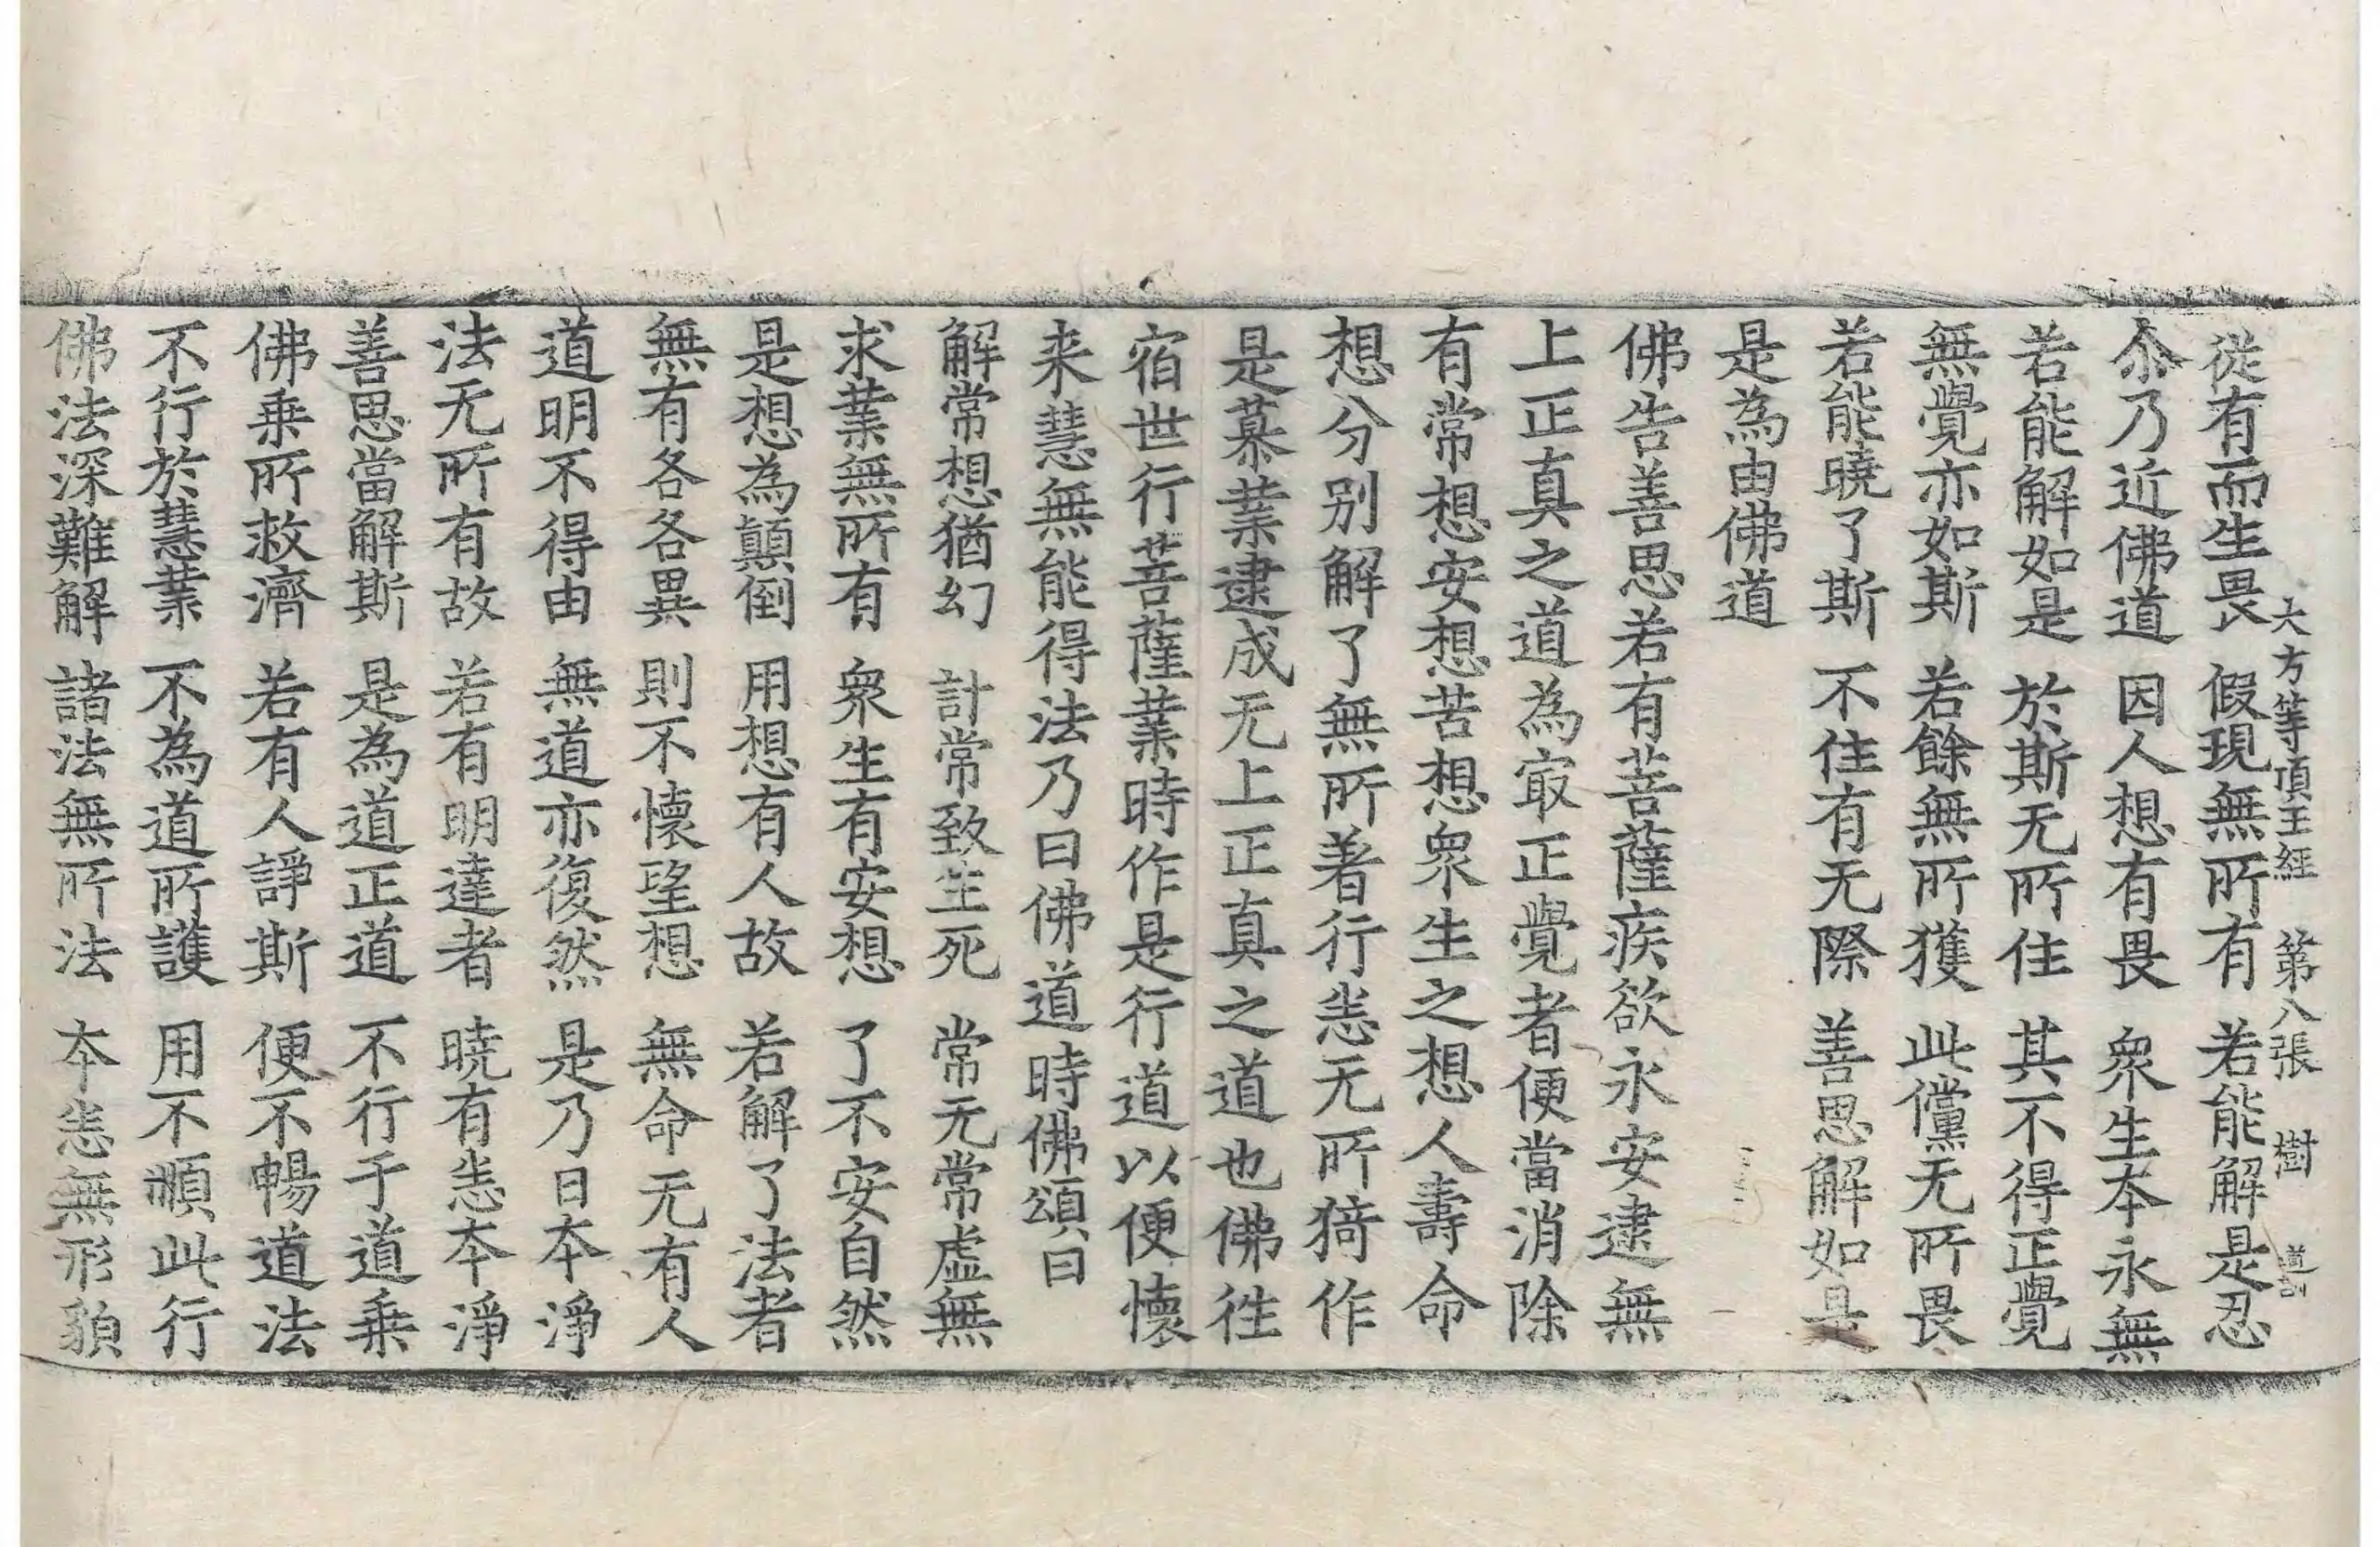 大方等頂王經 第八張 樹 道訓
從有而生畏 假現無所有 若能解是忍
尒乃近佛道 因人想有畏 衆生夲永無
若能解如是 於斯无所住 其不得正覺
無覺亦如斯 若餘無所獲 此儻无所畏
若能曉了斯 不住有无際 善思解如是
是為由佛道
佛告善思若有菩薩疾欲永安逮無
上正真之道為㝡正覺者便當消除
有常想安想苦想衆生之想人壽命
想分別解了無所著行恙无所猗作
是慕業逮成无上正真之道也佛徃
宿世行菩薩業時作是行道以便懷
来慧無能得法乃曰佛道時佛頌曰
解常想猶幻 計常致生死 常无常虛無
求業無所有 衆生有安想 了不安自然
是想為顛倒 用想有人故 若解了法者
無有各各異 則不懷望想 無命无有人
道明不得由 無道亦復然 是乃曰夲淨
法无所有故 若有明達者 曉有恙夲淨
善思當解斯 是為道正道 不行于道乗
佛乗所救濟 若有人諍斯 便不暢道法
不行於慧業 不為道所護 用不順此行
佛法深難解 諸法無所法 夲恙無形貌